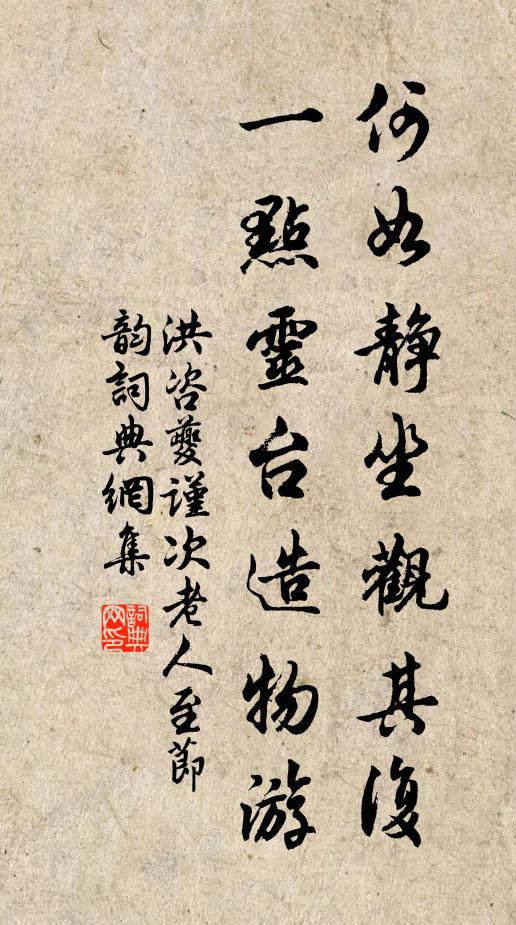 何如静坐觀其復
一點靈台造物游
洪咨夔謹次老人至節
韵詞典網集
詞典网印